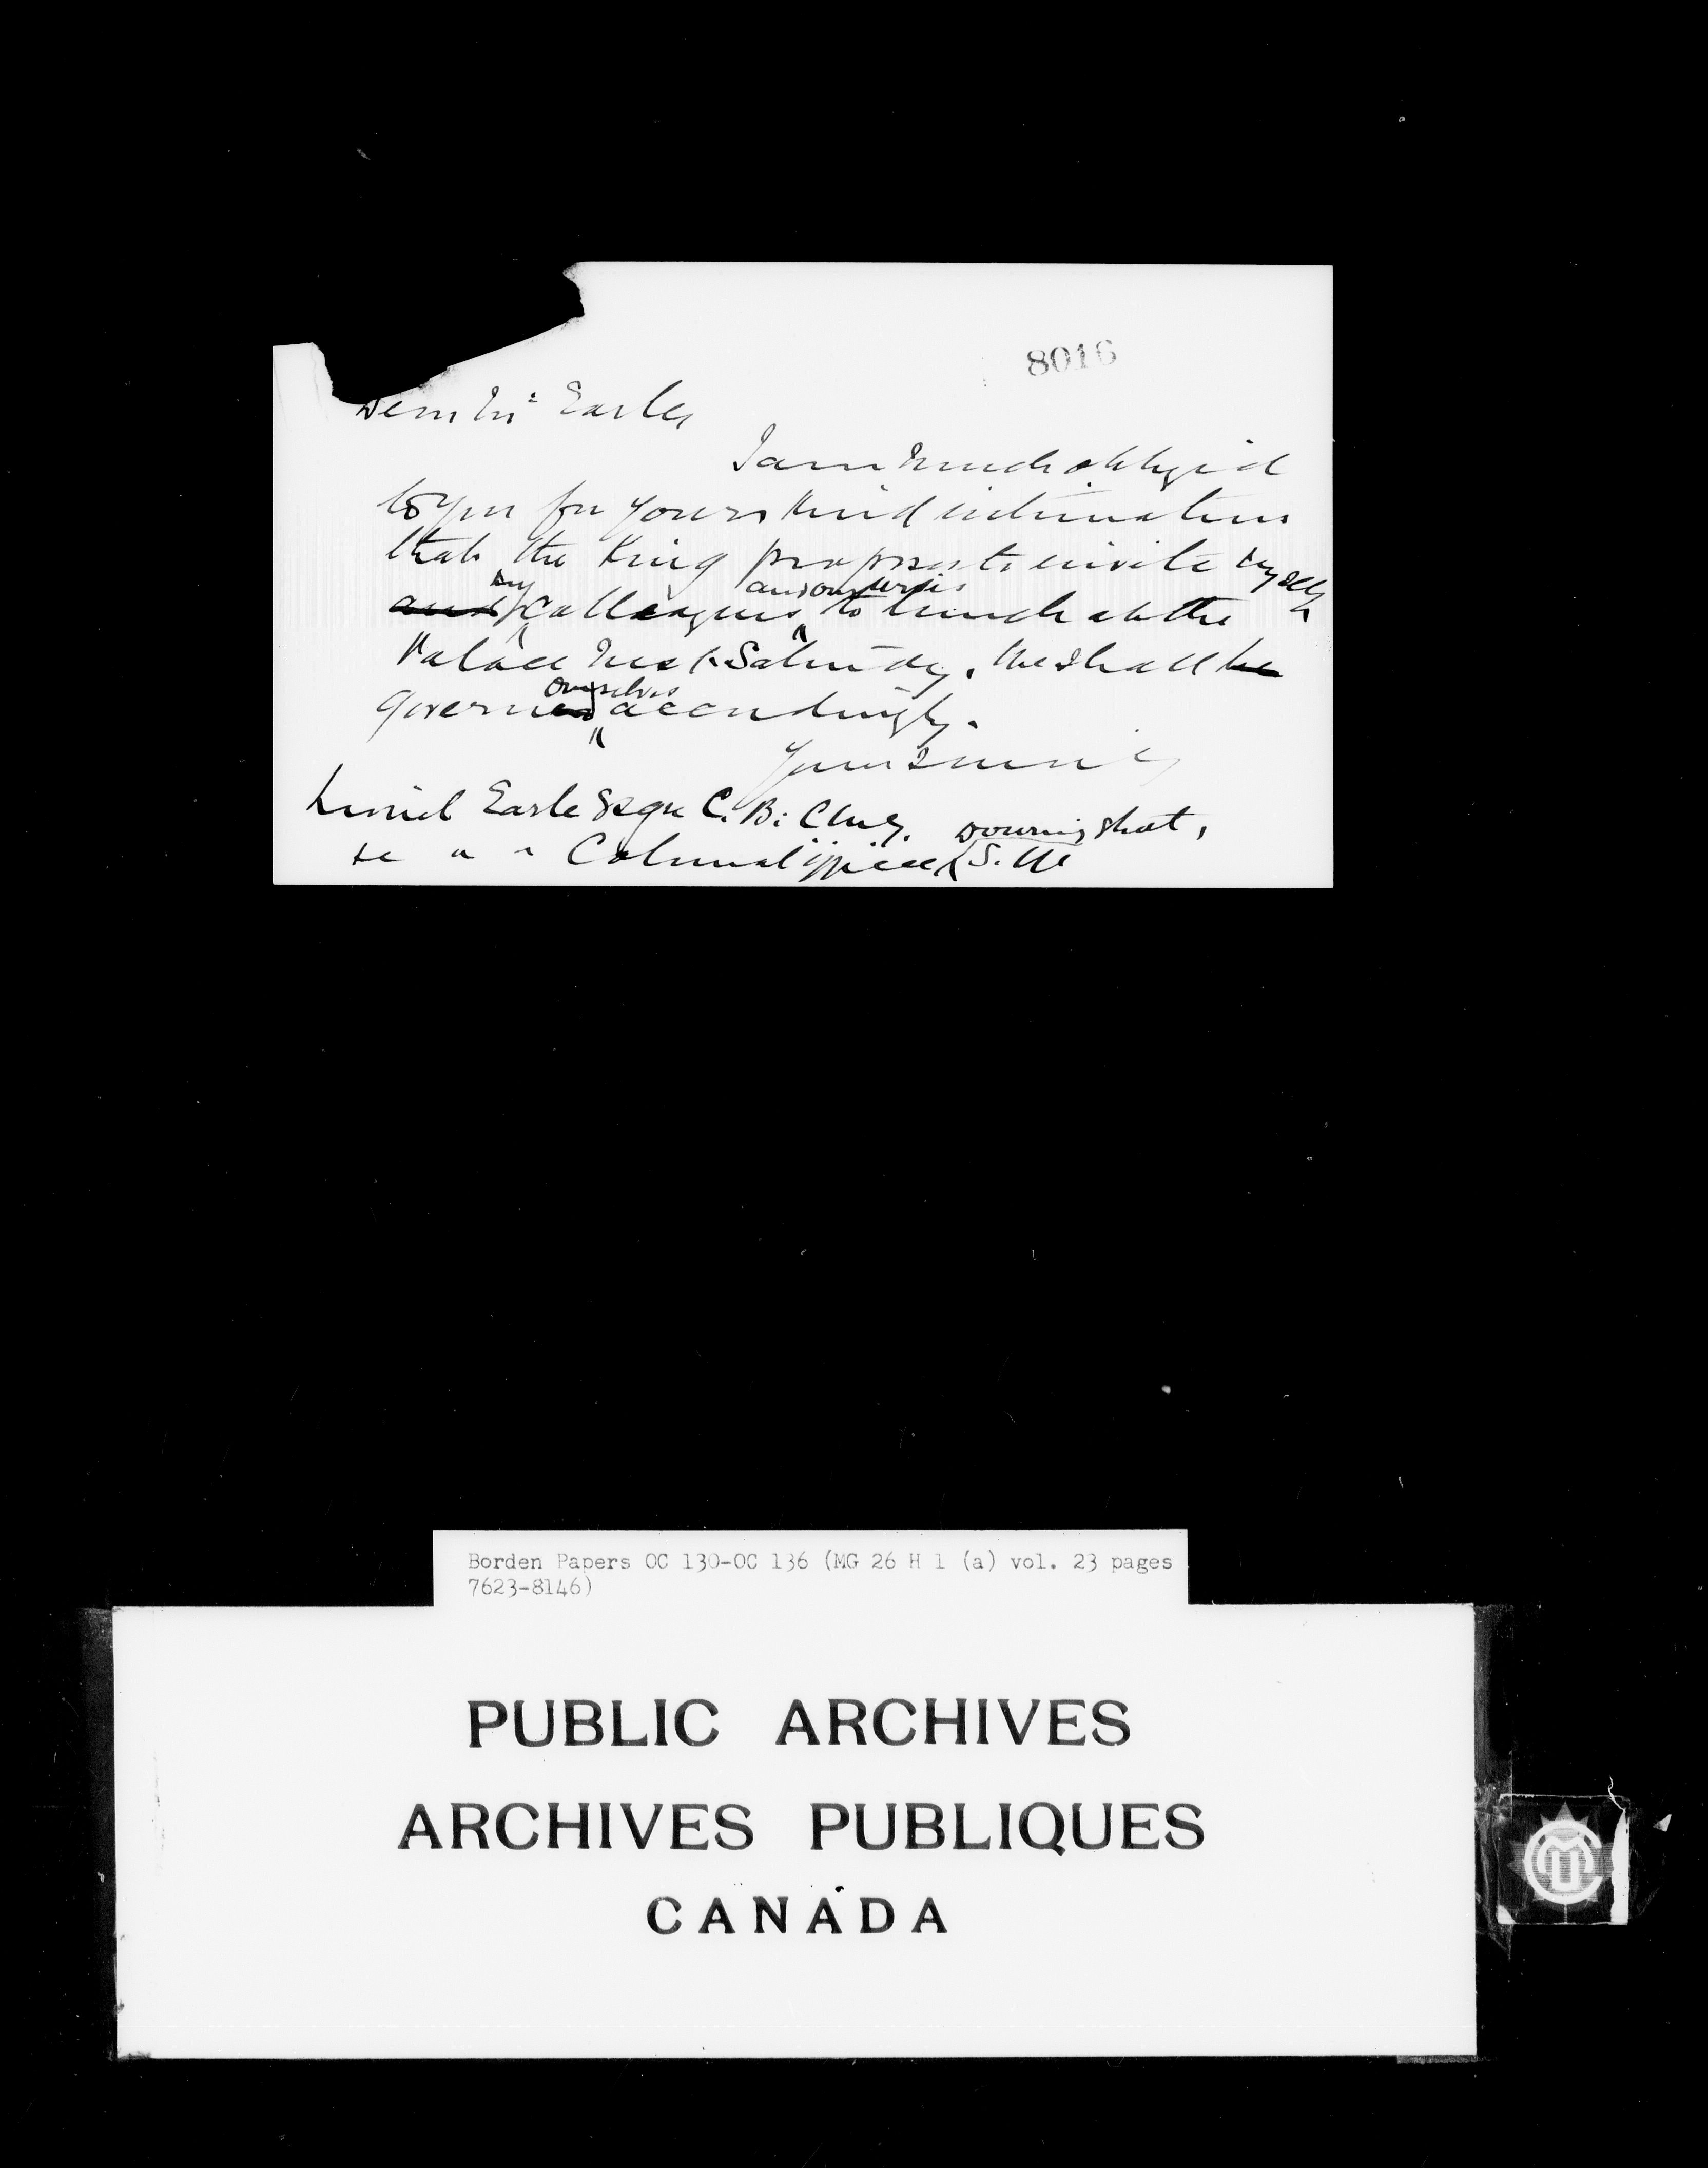 8016
Dear Mr. Earle,
I am much obliged
to you for your kind intimation
that the King proposes to invite myself
and my colleagues and our wives to lunch at the
Palace next Saturday. We shall be
governed ourselves accordingly.
Yours sincerely
Lionel Earle Esqre C.B. C.M.G.
&c " " Colonial office, Downing Street,
S.W.
Borden Papers OC 130-OC 136 (MG 26 H 1 (a) vol. 23 pages
7623-8146)
PUBLIC ARCHIVES
ARCHIVES PUBLIQUES
CANADA